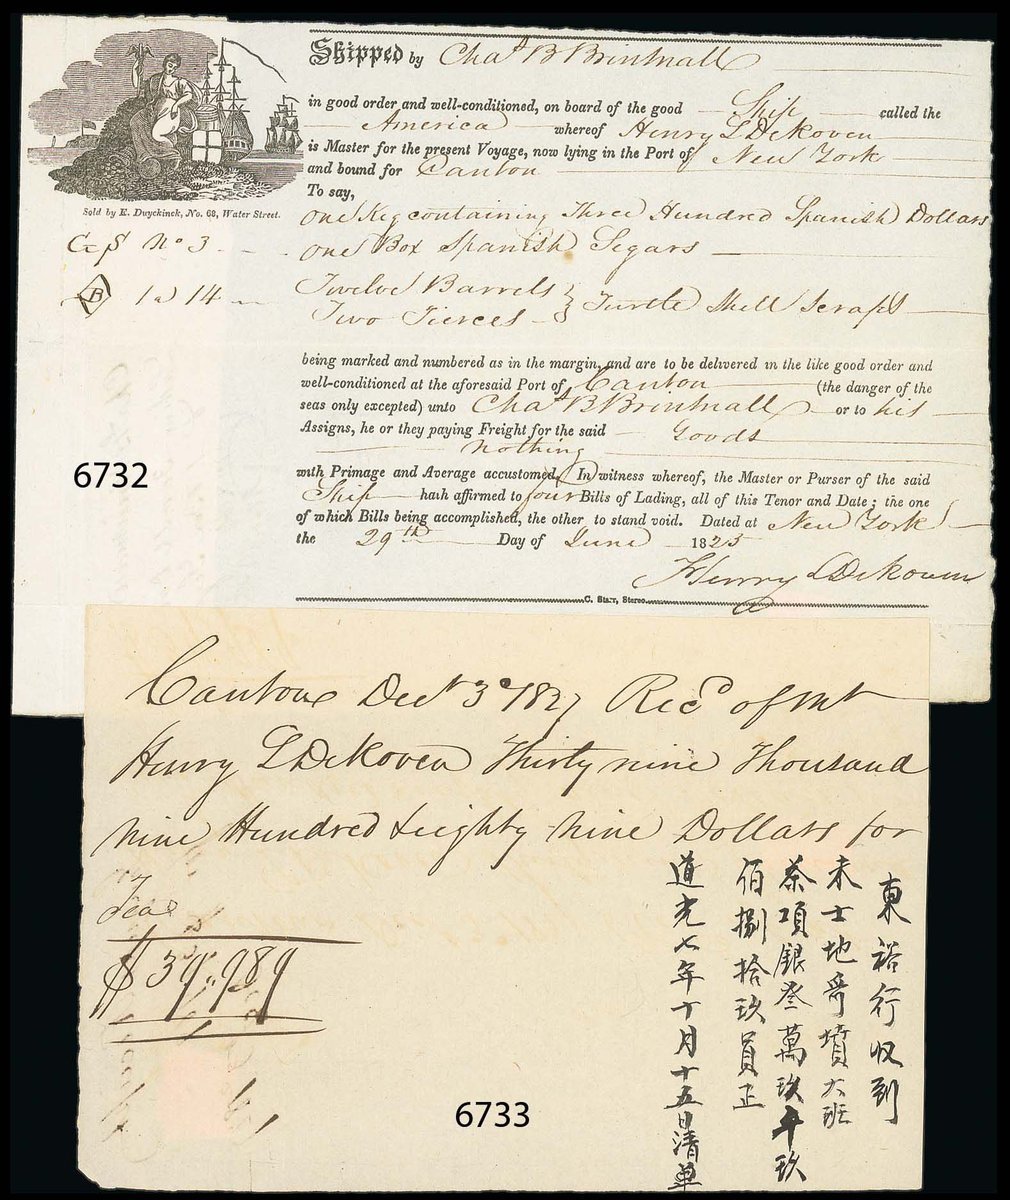 Shipped by Chas B Brintnall
in good order and well-conditioned, on board of the good Ship called the
America whereof Henry L DeKoven
is Master for the present Voyage, now lying in the Port of New York
and bound for Canton
To say,
one Keg containing Three Hundred Spanish Dollars
one Box Spanish Segars
Twelve Barrels
Two Tierces } Turtle Shell Scraps
Sold by E. Duyckinck, No. 68, Water Street.
No 3
B 1 a 14
being marked and numbered as in the margin, and are to be delivered in the like good order and
well-conditioned at the aforesaid Port of Canton (the danger of the
seas only excepted) unto Chas B Brintnall or to his
Assigns, he or they paying Freight for the said Goods
nothing
with Primage and Average accustomed. In witness whereof, the Master or Purser of the said
Ship hath affirmed to four Bills of Lading, all of this Tenor and Date; the one
of which Bills being accomplished, the other to stand void. Dated at New York
the 29th Day of June 1825
Henry L DeKoven
C. Starr, Stereo.
6732
Canton Dect 3d 1827 Recd of Mr
Henry L DeKoven Thirty nine Thousand
nine Hundred & eighty nine Dollars for
Teas
$39,,989
東裕行收到
未士地哥墳大班
茶項銀叁萬玖千玖
佰捌拾玖員正
道光七年十月十五日清單
6733